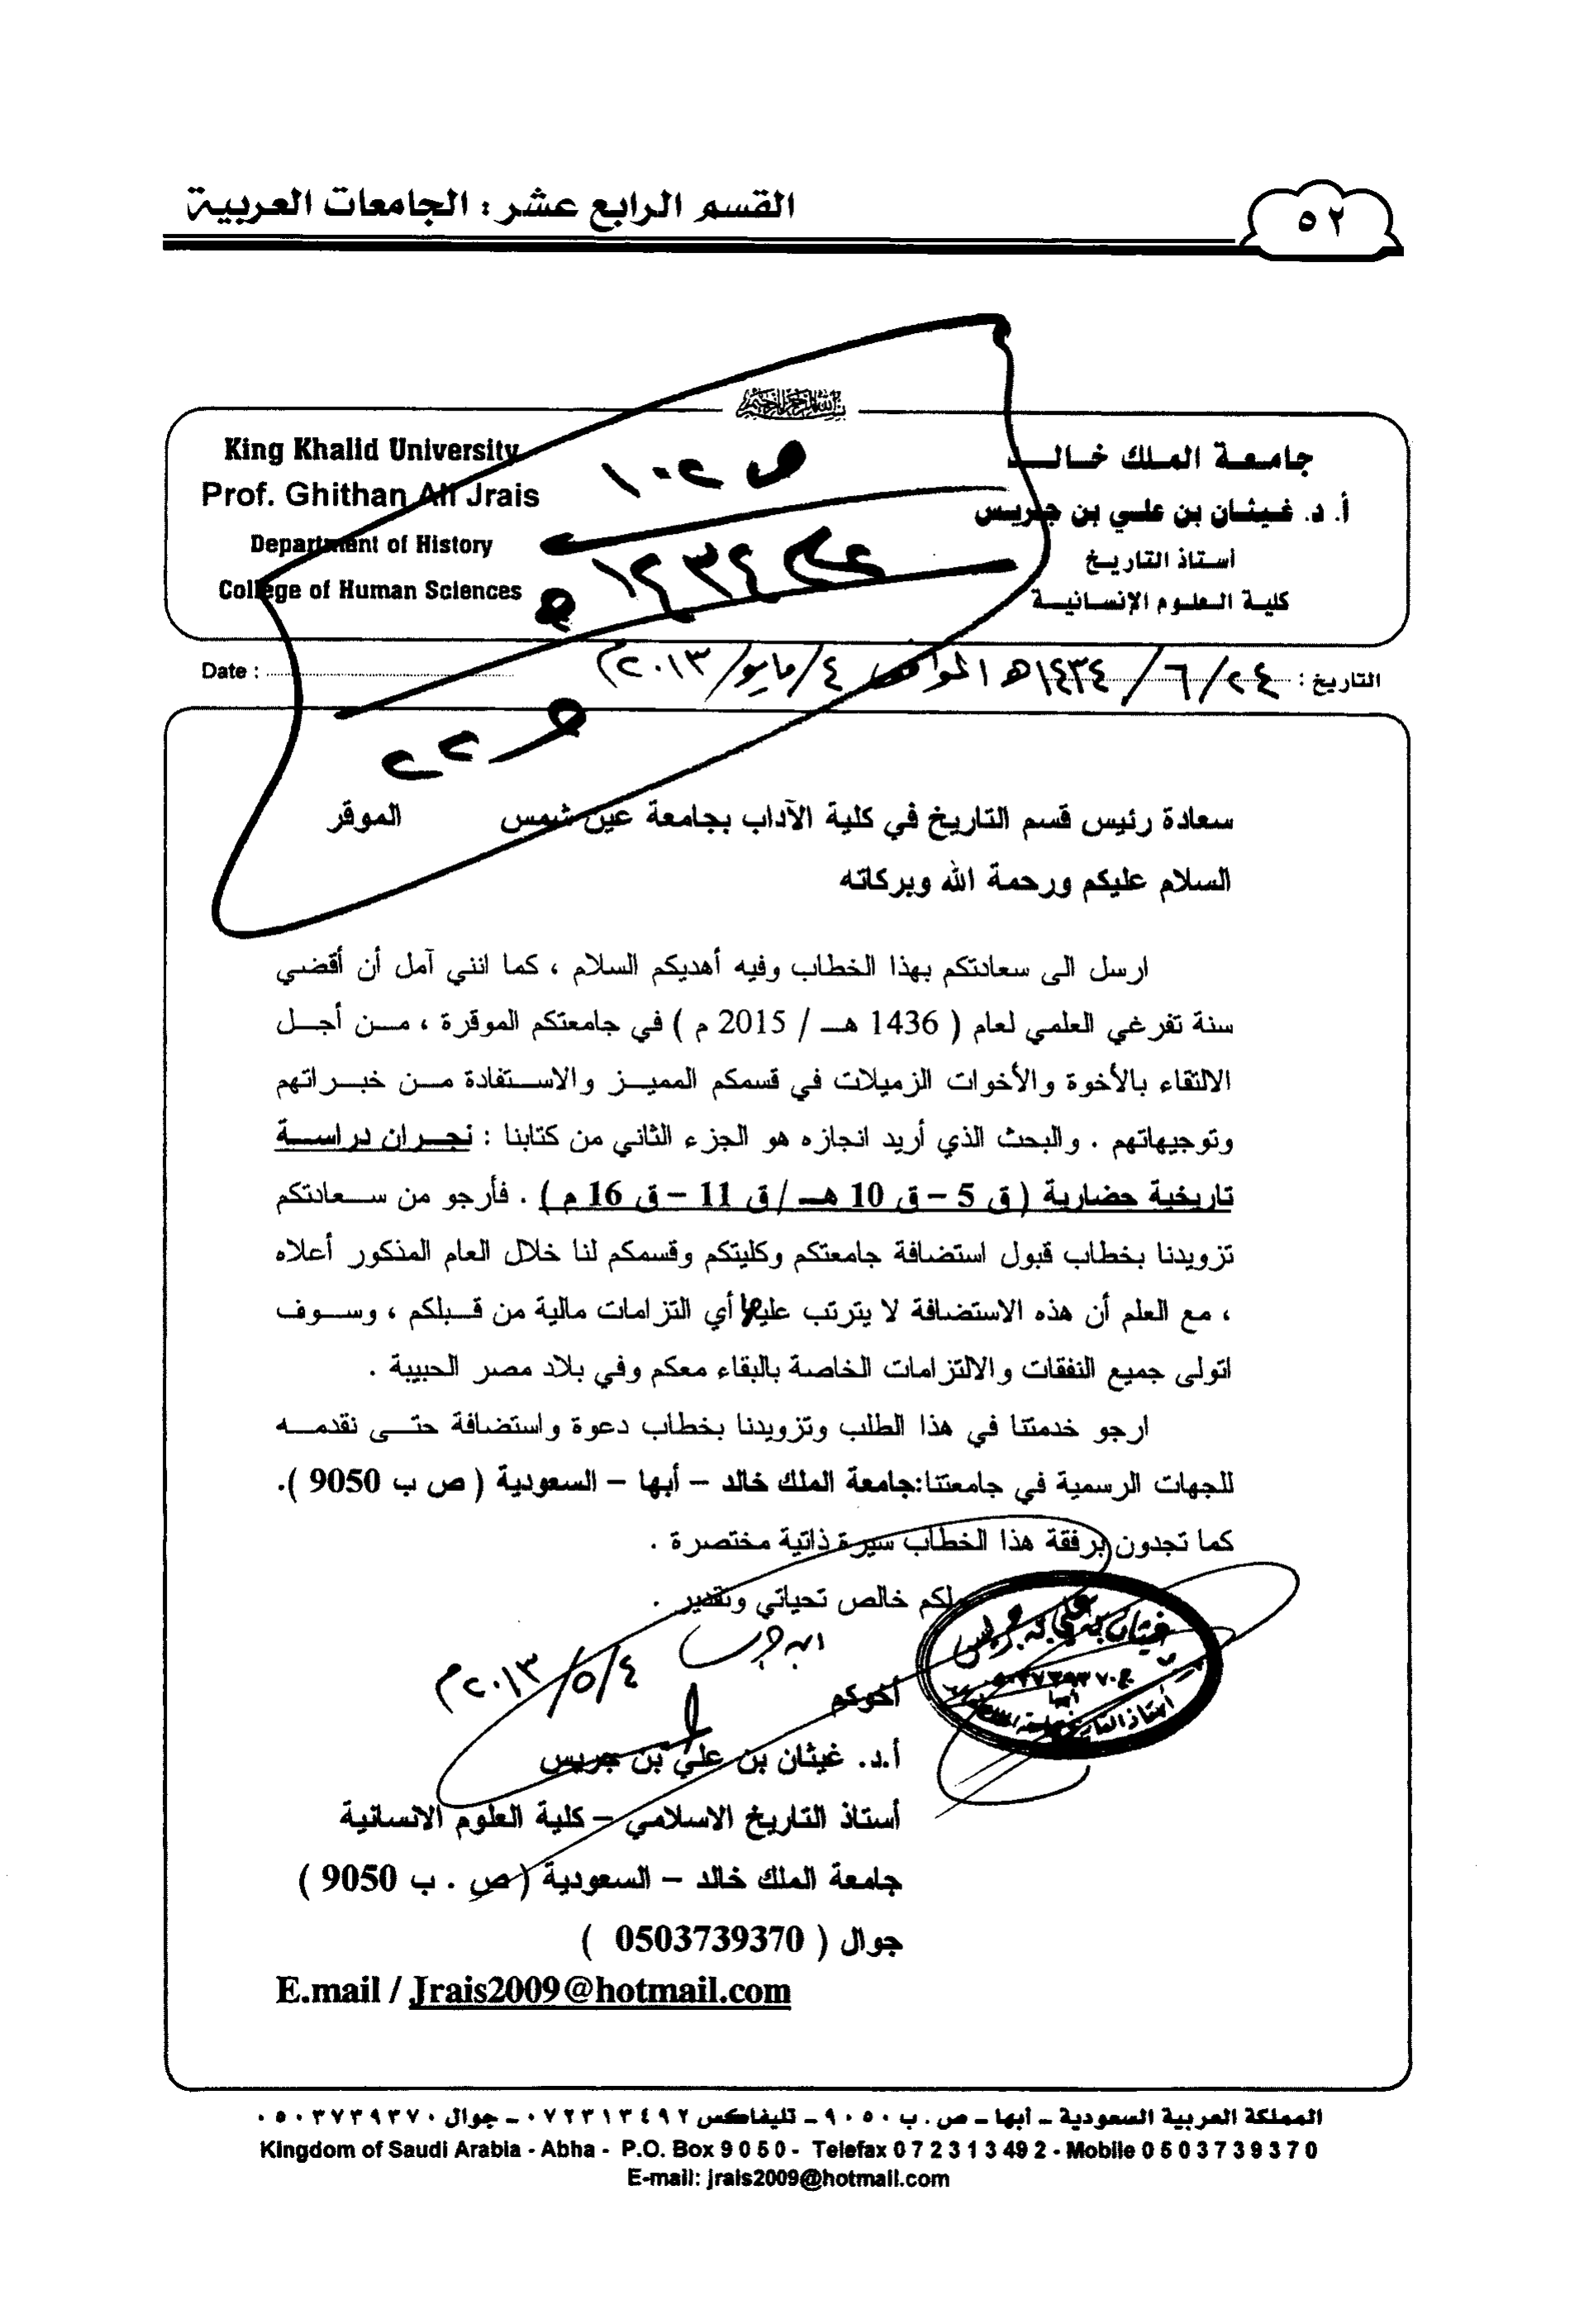 ٥٢
القسم الرابع عشر: الجامعات العربية
بسم الله الرحمن الرحيم
King Khalid University
Prof. Ghithan Ali Jrais
Department of History
College of Human Sciences
جامعة الملك خالد
أ. د. غيثان بن علي بن جريس
أستاذ التاريخ
كلية العلوم الإنسانية
ص ١٠٢
١٤٣٤
٢٢
التاريخ : ٢٤/٦/١٤٣٤هـ الموافق ٤/مايو/٢٠١٣م
Date :
سعادة رئيس قسم التاريخ في كلية الآداب بجامعة عين شمس الموقر
السلام عليكم ورحمة الله وبركاته
ارسل الى سعادتكم بهذا الخطاب وفيه أهديكم السلام ، كما انني آمل أن أقضي
سنة تفرغي العلمي لعام ( 1436 هـ / 2015 م ) في جامعتكم الموقرة ، من أجل
الالتقاء بالأخوة والأخوات الزميلات في قسمكم المميز والاستفادة من خبراتهم
وتوجيهاتهم . والبحث الذي أريد انجازه هو الجزء الثاني من كتابنا : نجران دراسة
تاريخية حضارية ( ق 5 – ق 10 هـ / ق 11 – ق 16 م ) . فأرجو من سعادتكم
تزويدنا بخطاب قبول استضافة جامعتكم وكليتكم وقسمكم لنا خلال العام المذكور أعلاه
، مع العلم أن هذه الاستضافة لا يترتب عليها أي التزامات مالية من قبلكم ، وسوف
اتولى جميع النفقات والالتزامات الخاصة بالبقاء معكم وفي بلاد مصر الحبيبة .
ارجو خدمتنا في هذا الطلب وتزويدنا بخطاب دعوة واستضافة حتى نقدمه
للجهات الرسمية في جامعتنا:جامعة الملك خالد – أبها – السعودية ( ص ب 9050 ).
كما تجدون برفقة هذا الخطاب سيرة ذاتية مختصرة .
ولكم خالص تحياتي وتقدير .
ابن جريس
٤/٥/٢٠١٣م
أخوكم
أ.د. غيثان بن علي بن جريس
أستاذ التاريخ الاسلامي – كلية العلوم الانسانية
جامعة الملك خالد – السعودية ( ص . ب 9050 )
جوال ( 0503739370 )
E.mail / Jrais2009@hotmail.com
غيثان بن علي بن جريس
أبها
المملكة العربية السعودية – أبها – ص . ب ٩٠٥٠ – تليفاكس ٠٧٢٣١٣٤٩٢ – جوال ٠٥٠٣٧٣٩٣٧٠
Kingdom of Saudi Arabia - Abha - P.O. Box 9 0 5 0 - Telefax 0 7 2 3 1 3 49 2 - Mobile 0 5 0 3 7 3 9 3 7 0
E-mail: jrais2009@hotmail.com